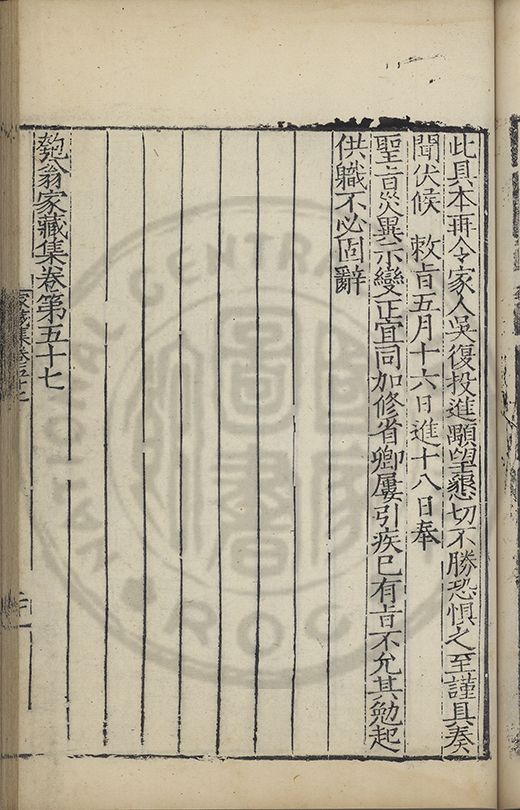 此具本再令家人吳復投進顒望懇切不勝恐懼之至謹具奏
聞伏候　敕旨五月十六日進十八日奉
聖旨災異示變正宜同加修省卿屢引疾已有旨不允其勉起
供職不必固辭
匏翁家藏集卷第五十七
家藏集卷五十七